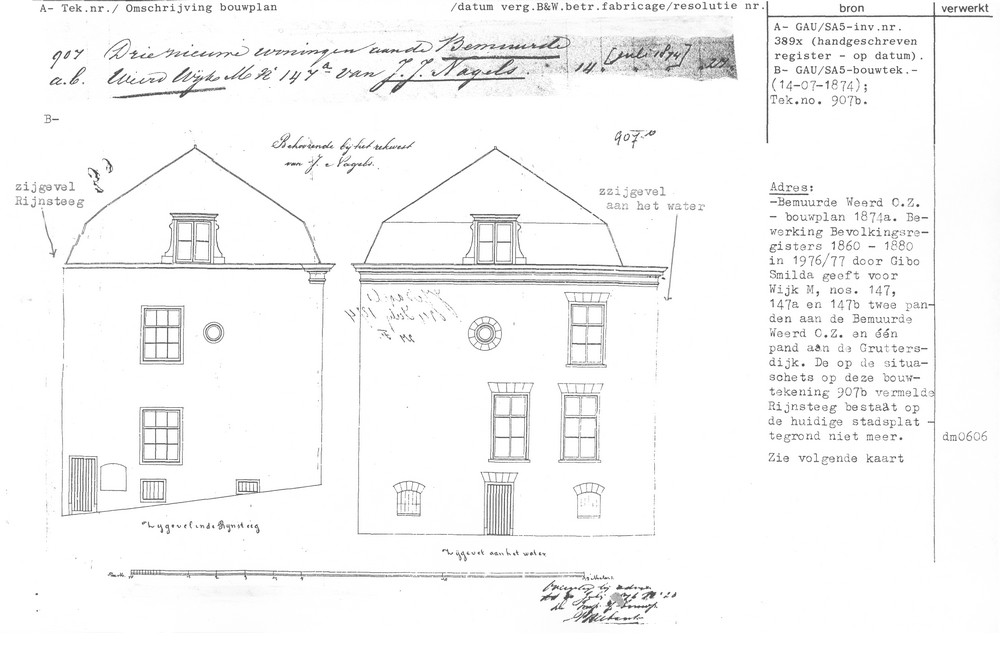 A- Tek.nr./ Omschrijving bouwplan
/datum verg.B&W.betr.fabricage/resolutie nr.
bron
verwerkt
907 Drie nieuwe woningen aan de Bemuurde
a.b. Weerd Wijk M No 147a van J. J. Nagels.
14 [juli 1874]
A- GAU/SA5-inv.nr.
389x (handgeschreven
register - op datum).
B- GAU/SA5-bouwtek.-
(14-07-1874);
Tek.no. 907b.
B-
Behoorende bij het rekwest
van J. Nagels.
907 b
zijgevel
Rijnsteeg
zzijgevel
aan het water
Adres:
-Bemuurde Weerd O.Z.
- bouwplan 1874a. Be-
werking Bevolkingsre-
gisters 1860 - 1880
in 1976/77 door Gibo
Smilda geeft voor
Wijk M, nos. 147,
147a en 147b twee pan-
den aan de Bemuurde
Weerd O.Z. en één
pand aan de Grutters-
dijk. De op de situa-
schets op deze bouw-
tekening 907b vermelde
Rijnsteeg bestaat op
de huidige stadsplat -
tegrond niet meer.
Zie volgende kaart
dm0606
Zijgevel in de Rijnsteeg
Zijgevel aan het water